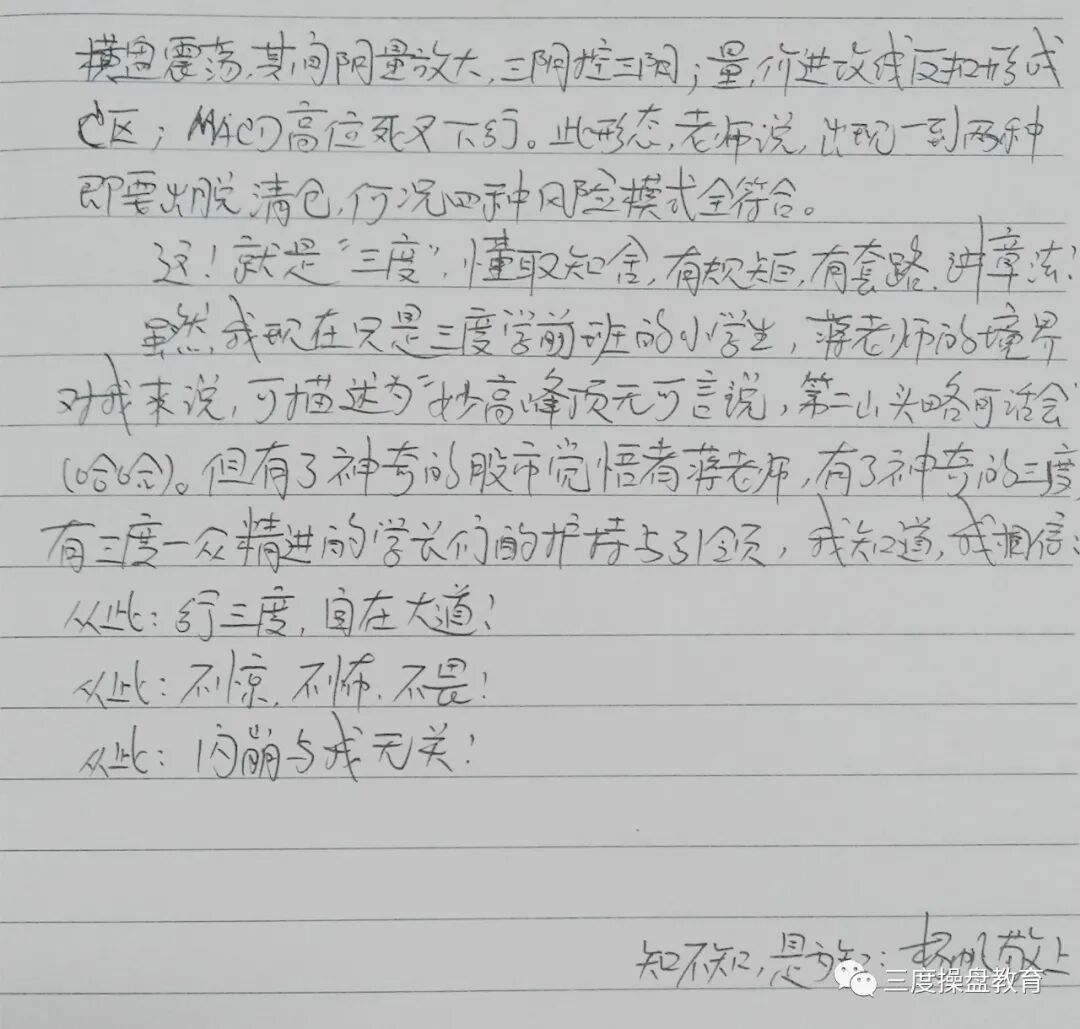 横盘震荡,其间阴量放大,三阴控三阳;量,价进攻线反扣形成
C区;MACD高位死叉下行。此形态,老师说,出现一到两种
即要出脱清仓,何况四种风险模式全符合。
这!就是“三度”,懂取知舍,有规矩,有套路,讲章法!
虽然,我现在只是三度学前班的小学生,蒋老师的境界
对我来说,可描述为“妙高峰顶无可言说,第二山头略可话会
(哈哈)。但有了神奇的股市觉悟者蒋老师,有了神奇的三度,
有三度一众精进的学长们的护持与引领,我知道,我相信:
从此:行三度,自在大道!
从此:不惊,不怖,不畏!
从此:闪崩与我无关!
知不知,是方知:杨帆敬上
三度操盘教育